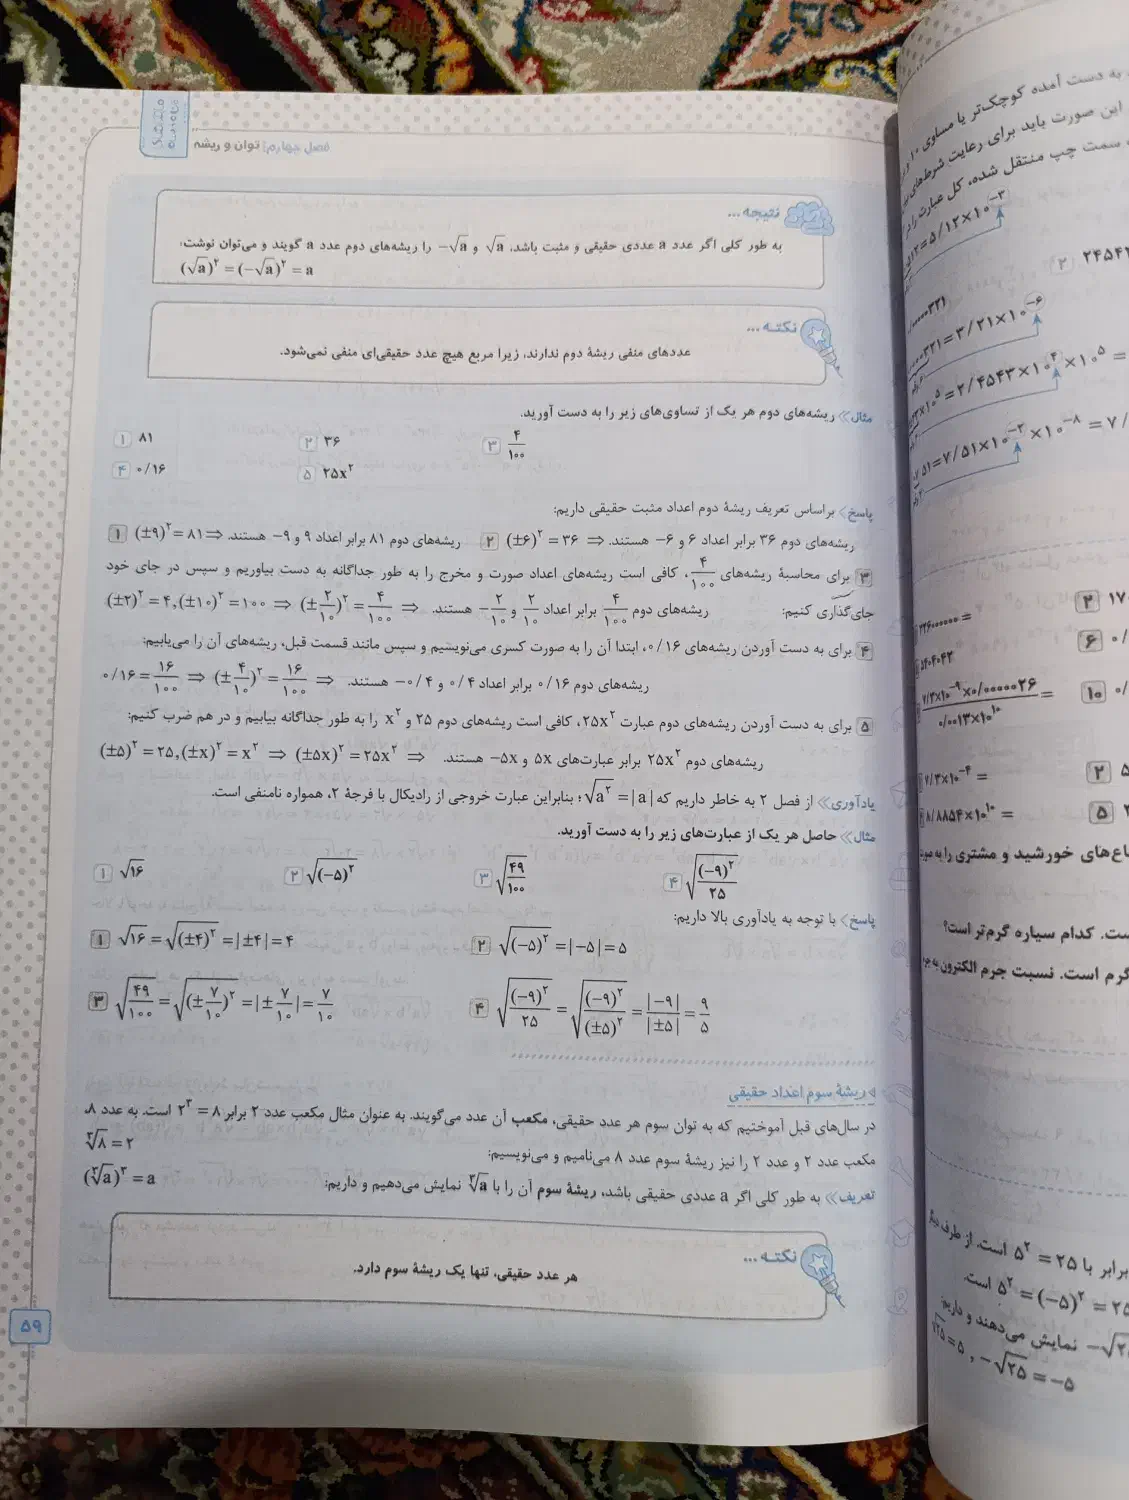 فصل چهارم: توان و ریشه
نتیجه ...
به طور کلی اگر عدد a عددی حقیقی و مثبت باشد، √a و −√a را ریشه‌های دوم عدد a گویند و می‌توان نوشت:
(√a)^۲ = (−√a)^۲ = a
نکتـه ...
عددهای منفی ریشهٔ دوم ندارند، زیرا مربع هیچ عدد حقیقی‌ای منفی نمی‌شود.
مثال» ریشه‌های دوم هر یک از تساوی‌های زیر را به دست آورید.
۱ ۸۱ ۲ ۳۶ ۳ ۴/۱۰۰
۴ ۰/۱۶ ۵ ۲۵x^۲
پاسخ» براساس تعریف ریشهٔ دوم اعداد مثبت حقیقی داریم:
۱ (±۹)^۲ = ۸۱ ⇒ ریشه‌های دوم ۸۱ برابر اعداد ۹ و ۹− هستند. ۲ (±۶)^۲ = ۳۶ ⇒ ریشه‌های دوم ۳۶ برابر اعداد ۶ و ۶− هستند.
۳ برای محاسبهٔ ریشه‌های ۴/۱۰۰، کافی است ریشه‌های اعداد صورت و مخرج را به طور جداگانه به دست بیاوریم و سپس در جای خود
جای‌گذاری کنیم: (±۲)^۲ = ۴, (±۱۰)^۲ = ۱۰۰ ⇒ (±۲/۱۰)^۲ = ۴/۱۰۰ ⇒ ریشه‌های دوم ۴/۱۰۰ برابر اعداد ۲/۱۰ و −۲/۱۰ هستند.
۴ برای به دست آوردن ریشه‌های ۰/۱۶، ابتدا آن را به صورت کسری می‌نویسیم و سپس مانند قسمت قبل، ریشه‌های آن را می‌یابیم:
۰/۱۶ = ۱۶/۱۰۰ ⇒ (±۴/۱۰)^۲ = ۱۶/۱۰۰ ⇒ ریشه‌های دوم ۰/۱۶ برابر اعداد ۰/۴ و ۰/۴− هستند.
۵ برای به دست آوردن ریشه‌های دوم عبارت ۲۵x^۲، کافی است ریشه‌های دوم ۲۵ و x^۲ را به طور جداگانه بیابیم و در هم ضرب کنیم:
(±۵)^۲ = ۲۵, (±x)^۲ = x^۲ ⇒ (±۵x)^۲ = ۲۵x^۲ ⇒ ریشه‌های دوم ۲۵x^۲ برابر عبارت‌های ۵x و −۵x هستند.
یادآوری» از فصل ۲ به خاطر داریم که √a^۲ = |a|؛ بنابراین عبارت خروجی از رادیکال با فرجهٔ ۲، همواره نامنفی است.
مثال» حاصل هر یک از عبارت‌های زیر را به دست آورید.
۱ √۱۶ ۲ √(−۵)^۲ ۳ √(۴۹/۱۰۰) ۴ √((−۹)^۲/۲۵)
پاسخ» با توجه به یادآوری بالا داریم:
۱ √۱۶ = √(±۴)^۲ = |±۴| = ۴ ۲ √(−۵)^۲ = |−۵| = ۵
۳ √(۴۹/۱۰۰) = √(±۷/۱۰)^۲ = |±۷/۱۰| = ۷/۱۰ ۴ √((−۹)^۲/۲۵) = √((−۹)^۲/(±۵)^۲) = |−۹|/|±۵| = ۹/۵
ریشهٔ سوم اعداد حقیقی
در سال‌های قبل آموختیم که به توان سوم هر عدد حقیقی، مکعب آن عدد می‌گویند. به عنوان مثال مکعب عدد ۲ برابر ۲^۳ = ۸ است. به عدد ۸،
مکعب عدد ۲ و عدد ۲ را نیز ریشهٔ سوم عدد ۸ می‌نامیم و می‌نویسیم: ∛۸ = ۲
تعریف» به طور کلی اگر a عددی حقیقی باشد، ریشهٔ سوم آن را با ∛a نمایش می‌دهیم و داریم: (∛a)^۳ = a
نکتـه ...
هر عدد حقیقی، تنها یک ریشهٔ سوم دارد.
۵۹
به دست آمده کوچک‌تر یا مساوی ۱۰
این صورت باید برای رعایت شرط‌های
سمت چپ منتقل شده، کل عبارت را در
= ۵/۱۲×۱۰^−۳
= ۳/۲۱×۱۰^−۶
= ۲/۴۵۴۳×۱۰^۴×۱۰^۵ =
۵۱ = ۷/۵۱×۱۰^−۲×۱۰^−۸ = ۷/
۲ ۱۷
۶ ۰/
۱۰ ۰/
۷/۳×۱۰^−۴ =
۸/۸۸۵۴×۱۰^۱۰ =
خورشید و مشتری را به
ست. کدام سیاره گرم‌تر است؟
گرم است. نسبت جرم الکترون به
برابر با ۲۵ = ۵^۲ است. از طرف
۵^۲ = (−۵)^۲ = ۲۵ است.
نمایش می‌دهند و داریم:
√۲۵ = ۵ , −√۲۵ = −۵